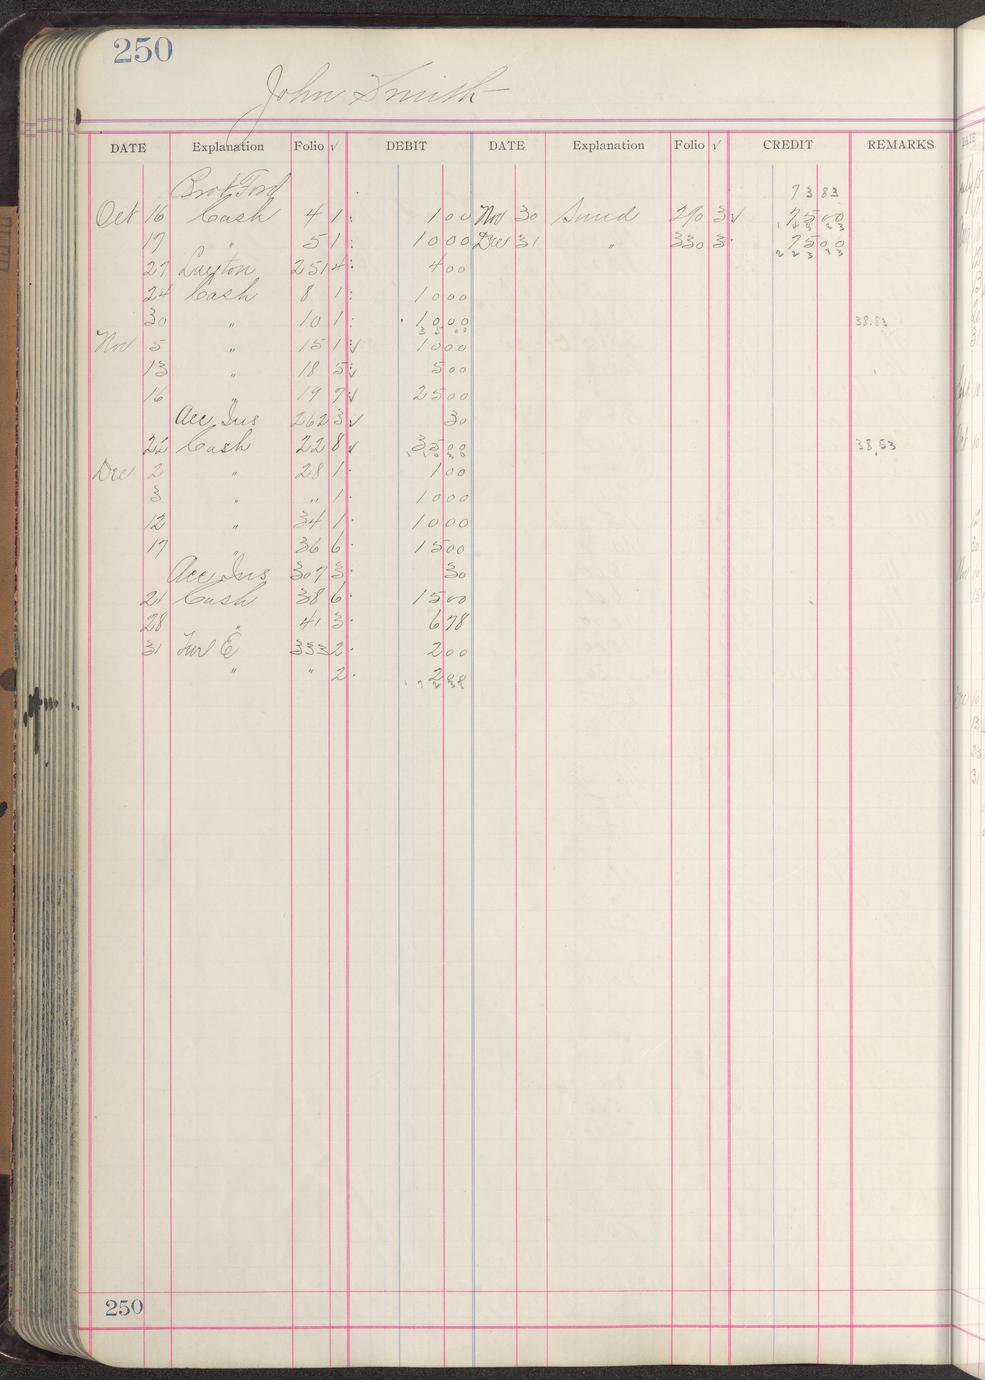 250
John Smith
DATE Explanation Folio √ DEBIT DATE Explanation Folio √ CREDIT REMARKS
Brot Ford 73 83
Oct 16 Cash 4 1 1 00 Nov 30 Sund 290 3 √ 75 00
17 " 5 1 10 00 Dec 31 " 330 3 75 00
27 Layton 251 4 4 00
24 Cash 8 1 10 00
30 " 10 1 10 00 38.83
35 00
Nov 5 " 15 1 √ 10 00
13 " 18 5 √ 5 00
16 " 19 7 √ 25 00
Acc Ins 262 3 √ 30
22 Cash 22 8 √ 35 00 38,53
110 30
Dec 2 " 28 1 1 00
3 " " 1 10 00
12 " 34 1 10 00
17 " 36 6 15 00
Acc Ins 307 3 30
21 Cash 38 6 15 00
28 " 41 3 6 78
31 Furl E 333 2 2 00
" " 2
250